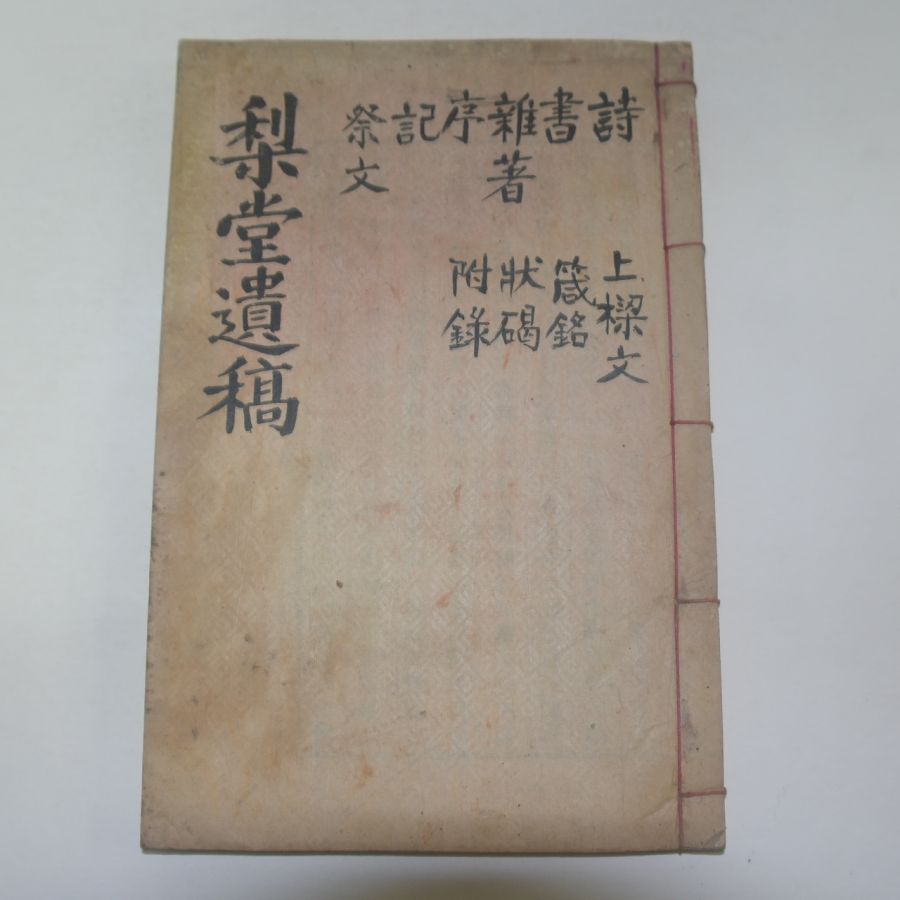 詩
書
雜著
序
記
祭文
上樑文
箴銘
狀碣
附錄
梨堂遺稿